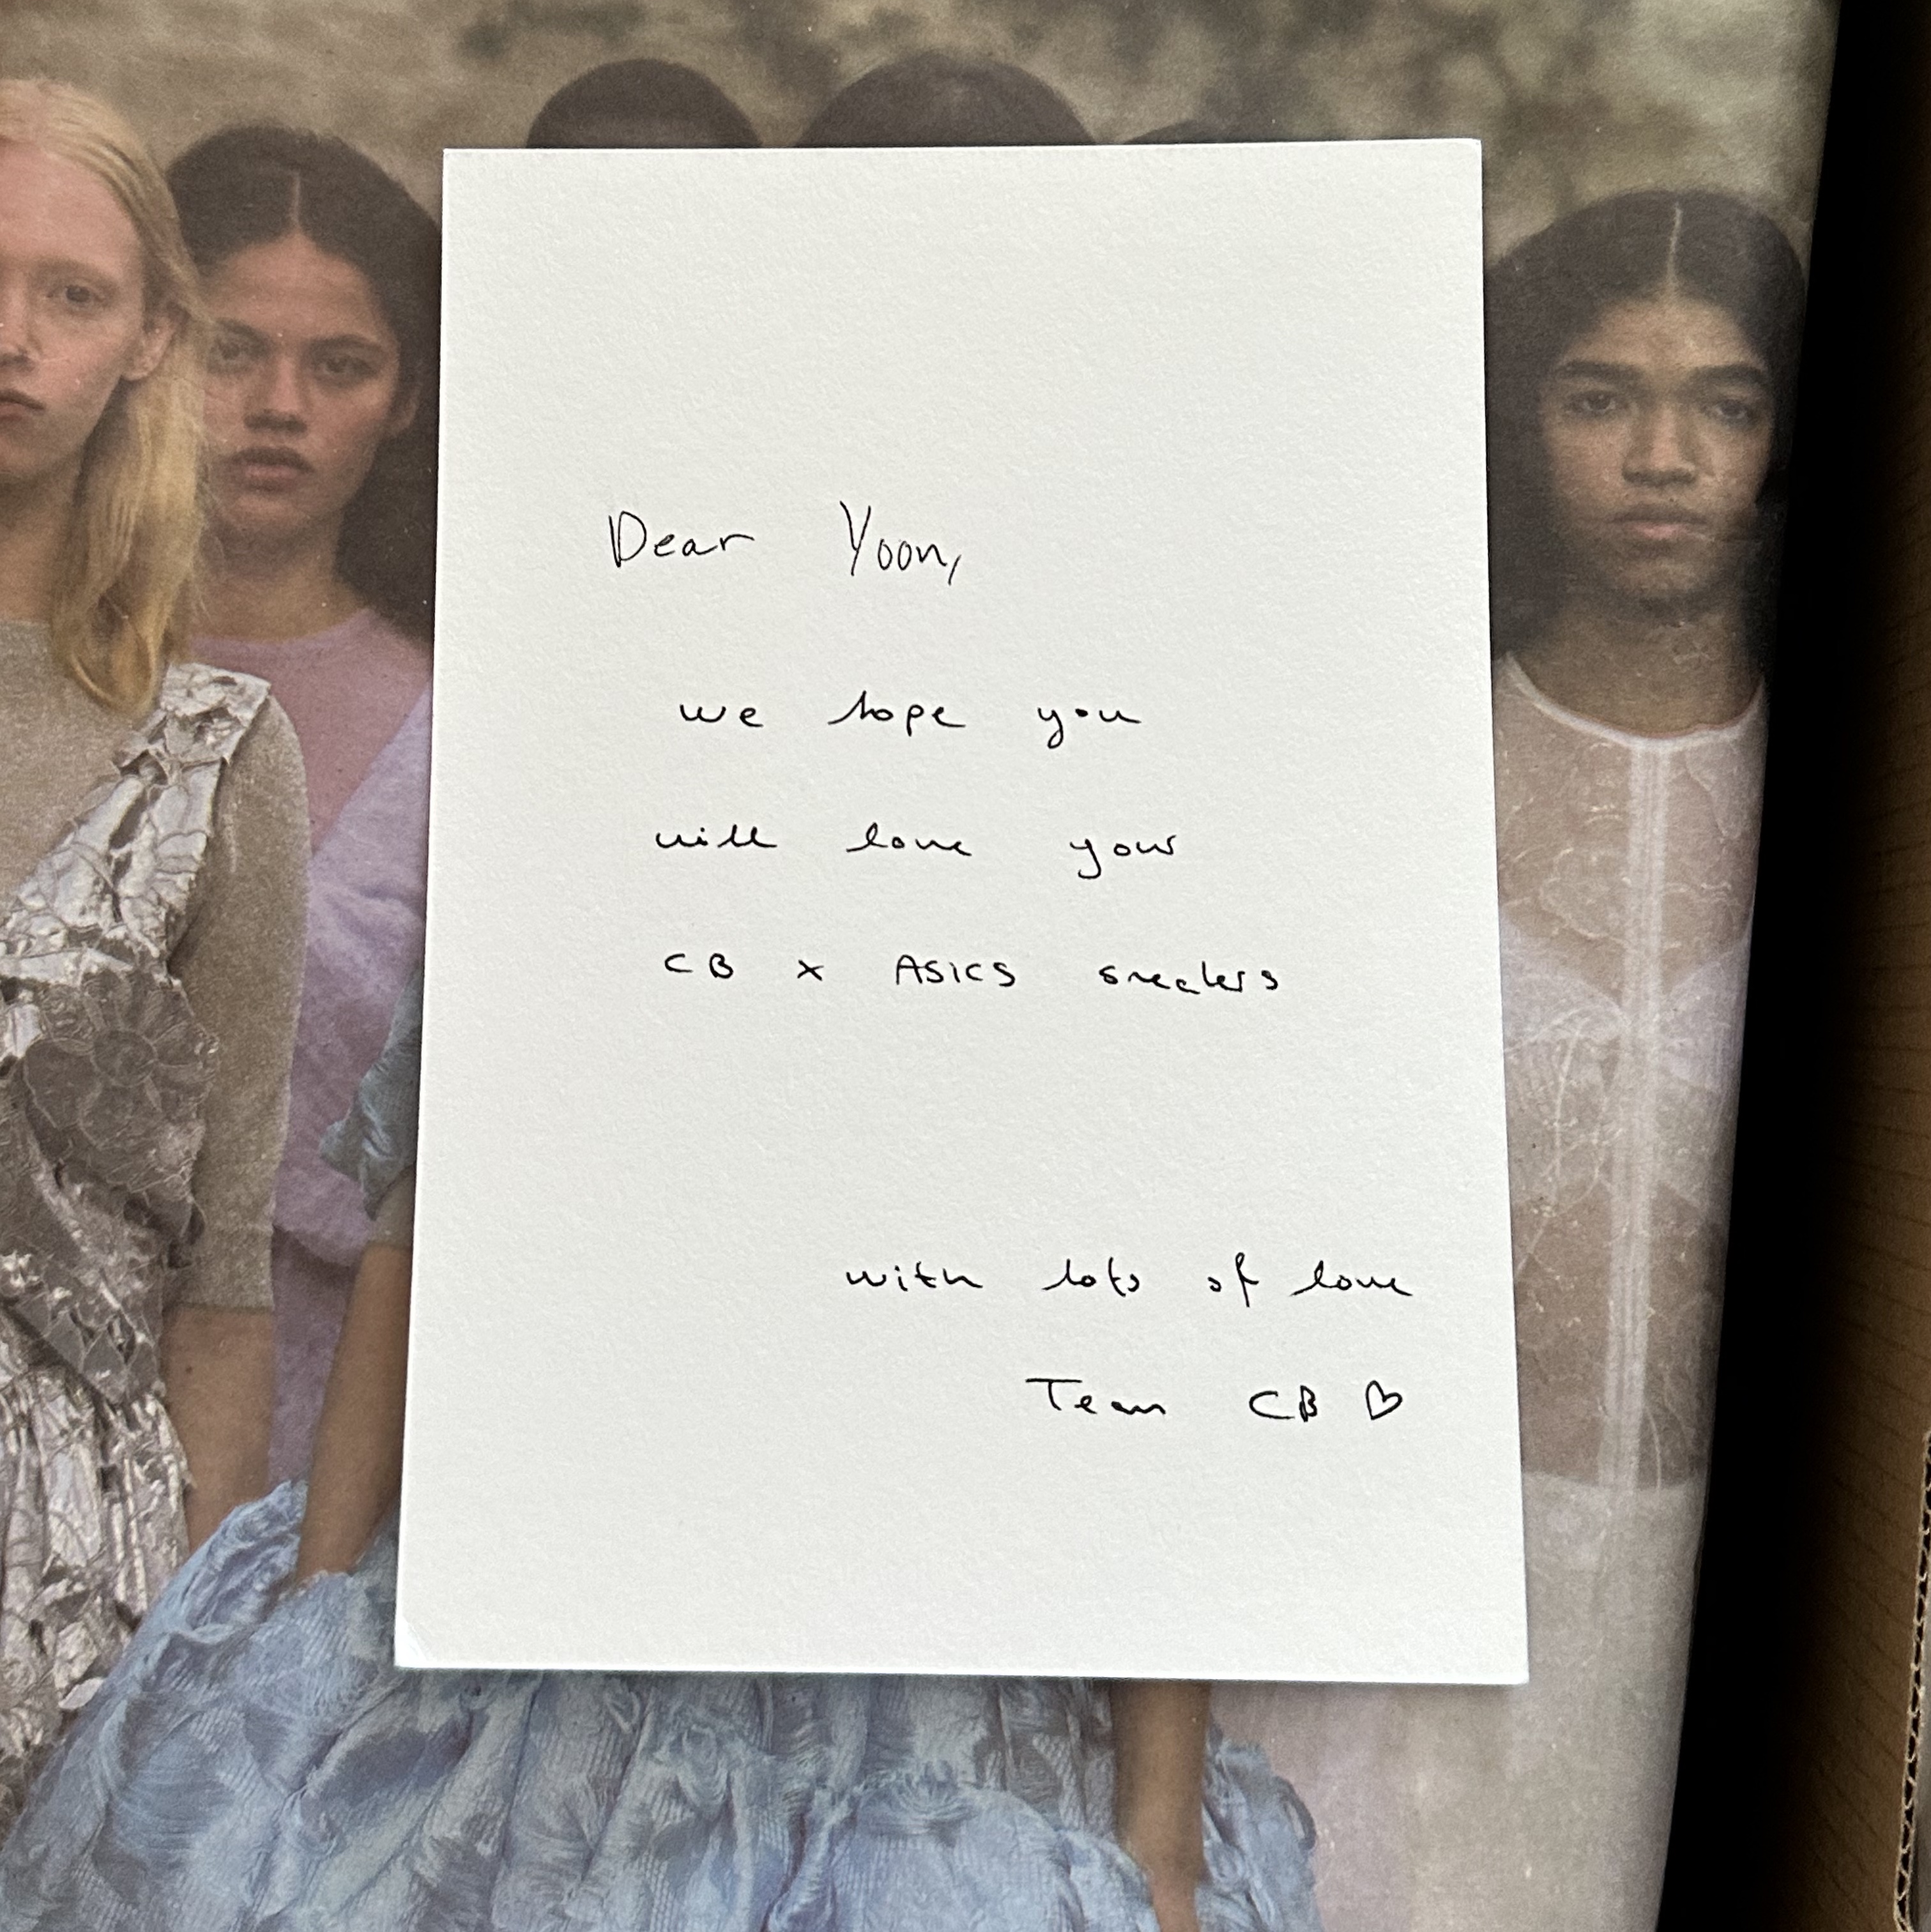 Dear Yoon,
we hope you
will love your
CB x ASICS sneakers
with lots of love
Team CB ♡